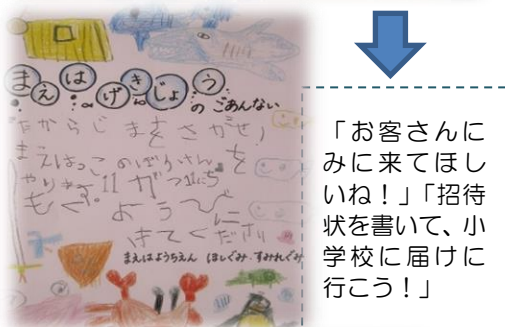 まえはげきじょう
のごあんない
たからじまをさがせ!
まえはっこ を
やります 11がつ
もくようびに
きてください
まえはようちえん ほしぐみ・すみれぐみ
「お客さんに
みに来てほし
いね!」「招待
状を書いて、小
学校に届けに
行こう!」